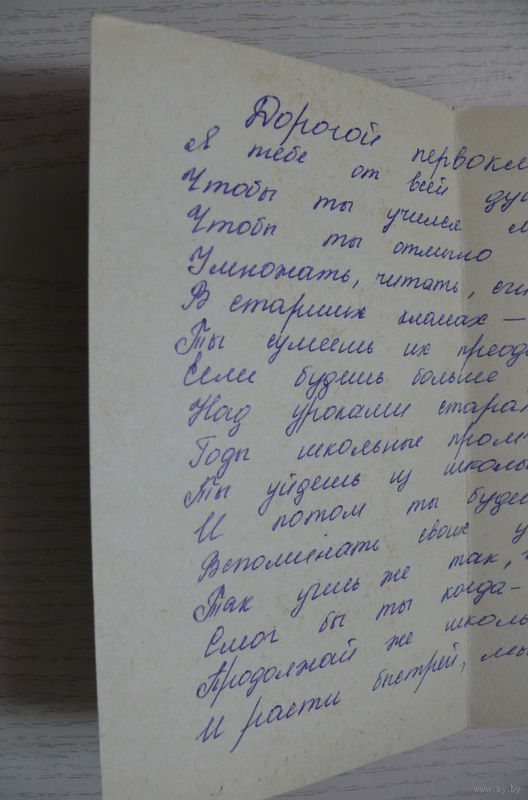 Дорогой первокл
Я тебе от всей ду
Чтобы ты учился
Чтобы ты отлично
Умножать, читать,
В старших классах —
Ты сумеешь их преодо
Если будешь больше
Над уроками старат
Годы школьные пром
Ты уйдешь из школы
И потом ты будешь
Вспоминать своих у
Так учись же так,
Смог бы ты когда-
Продолжай же школь
И расти быстрей,
www.ay.by